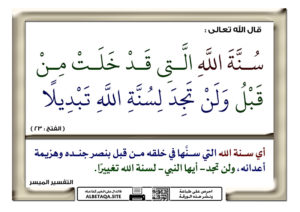 قال الله تعالى :
سُنَّةَ اللَّهِ الَّتِي قَدْ خَلَتْ مِنْ
قَبْلُ وَلَنْ تَجِدَ لِسُنَّةِ اللَّهِ تَبْدِيلًا
( الفتح : ٢٣ )
أي سنة الله التي سنَّها في خلقه من قبل بنصر جنده وهزيمة
أعدائه، ولن تجد- أيها النبي- لسنة الله تغييرًا.
التفسير الميسر
احرص على طباعة
ونشر هذه البطاقة
ALBETAQA.SITE